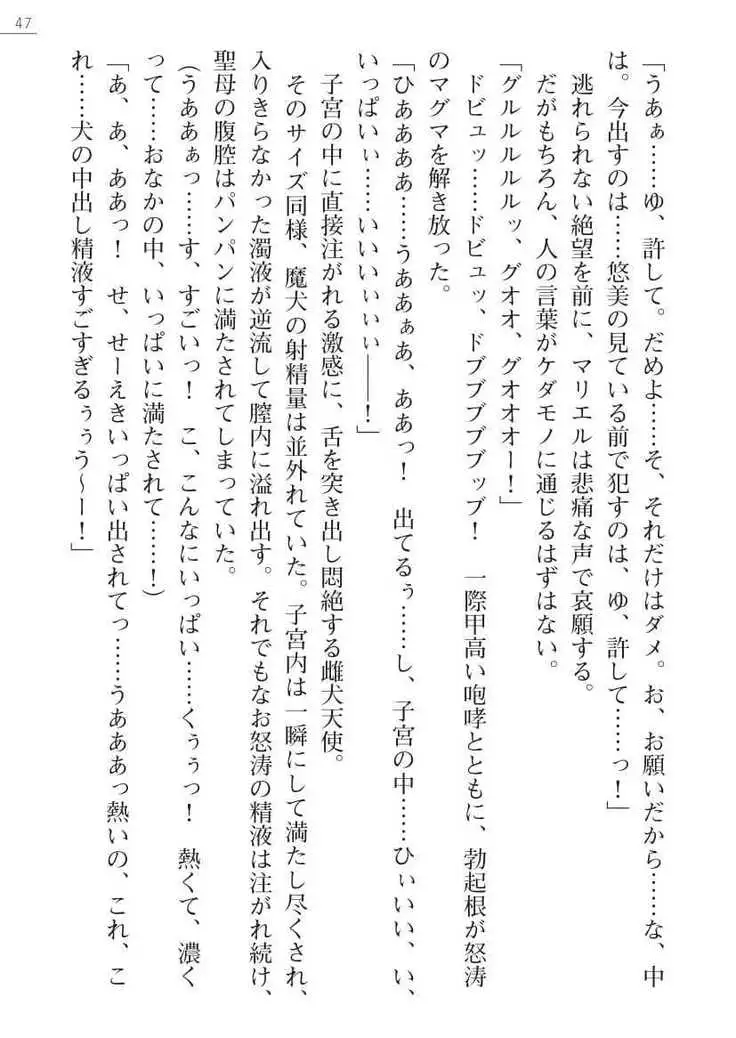 47
「うあぁ……ゆ、許して。だめよ……そ、それだけはダメ。お、お願いだから……な、中
は。今出すのは……悠美の見ている前で犯すのは、ゆ、許して……っ!」
逃れられない絶望を前に、マリエルは悲痛な声で哀願する。
だがもちろん、人の言葉がケダモノに通じるはずはない。
「グルルルルルッ、グオオ、グオオオー!」
ドビュッ……ドビュッ、ドブブブブッブ! 一際甲高い咆哮とともに、勃起根が怒涛
のマグマを解き放った。
「ひあぁああ……うああぁあ、ああっ! 出てるぅ……し、子宮の中……ひぃいい、い、
いっぱいぃ……いいいいぃぃ――!」
子宮の中に直接注がれる激感に、舌を突き出し悶絶する雌犬天使。
そのサイズ同様、魔犬の射精量は並外れていた。子宮内は一瞬にして満たし尽くされ、
入りきらなかった濁液が逆流して膣内に溢れ出す。それでもなお怒涛の精液は注がれ続け、
聖母の腹腔はパンパンに満たされてしまっていた。
(うああぁっ……す、すごいっ! こ、こんなにいっぱい……くぅぅっ! 熱くて、濃く
って……おなかの中、いっぱいに満たされて……!)
「あ、あ、ああっ! せ、せーえきいっぱい出されてっ……うあああっ熱いの、これ、こ
れ……犬の中出し精液すごすぎるぅぅう～ー!」